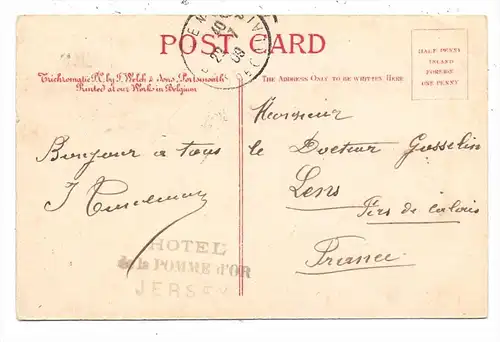 POST CARD
Trichromatic P.C. by J. Welch & Sons, Portsmouth
Printed at our Works in Belgium
THE ADDRESS ONLY TO BE WRITTEN HERE
HALF PENNY
INLAND
FOREIGN
ONE PENNY
Monsieur
le Docteur Gosselin
Lens
Pas de Calais
France
Bonjour à tous
HOTEL
de la POMME d'OR
JERSEY